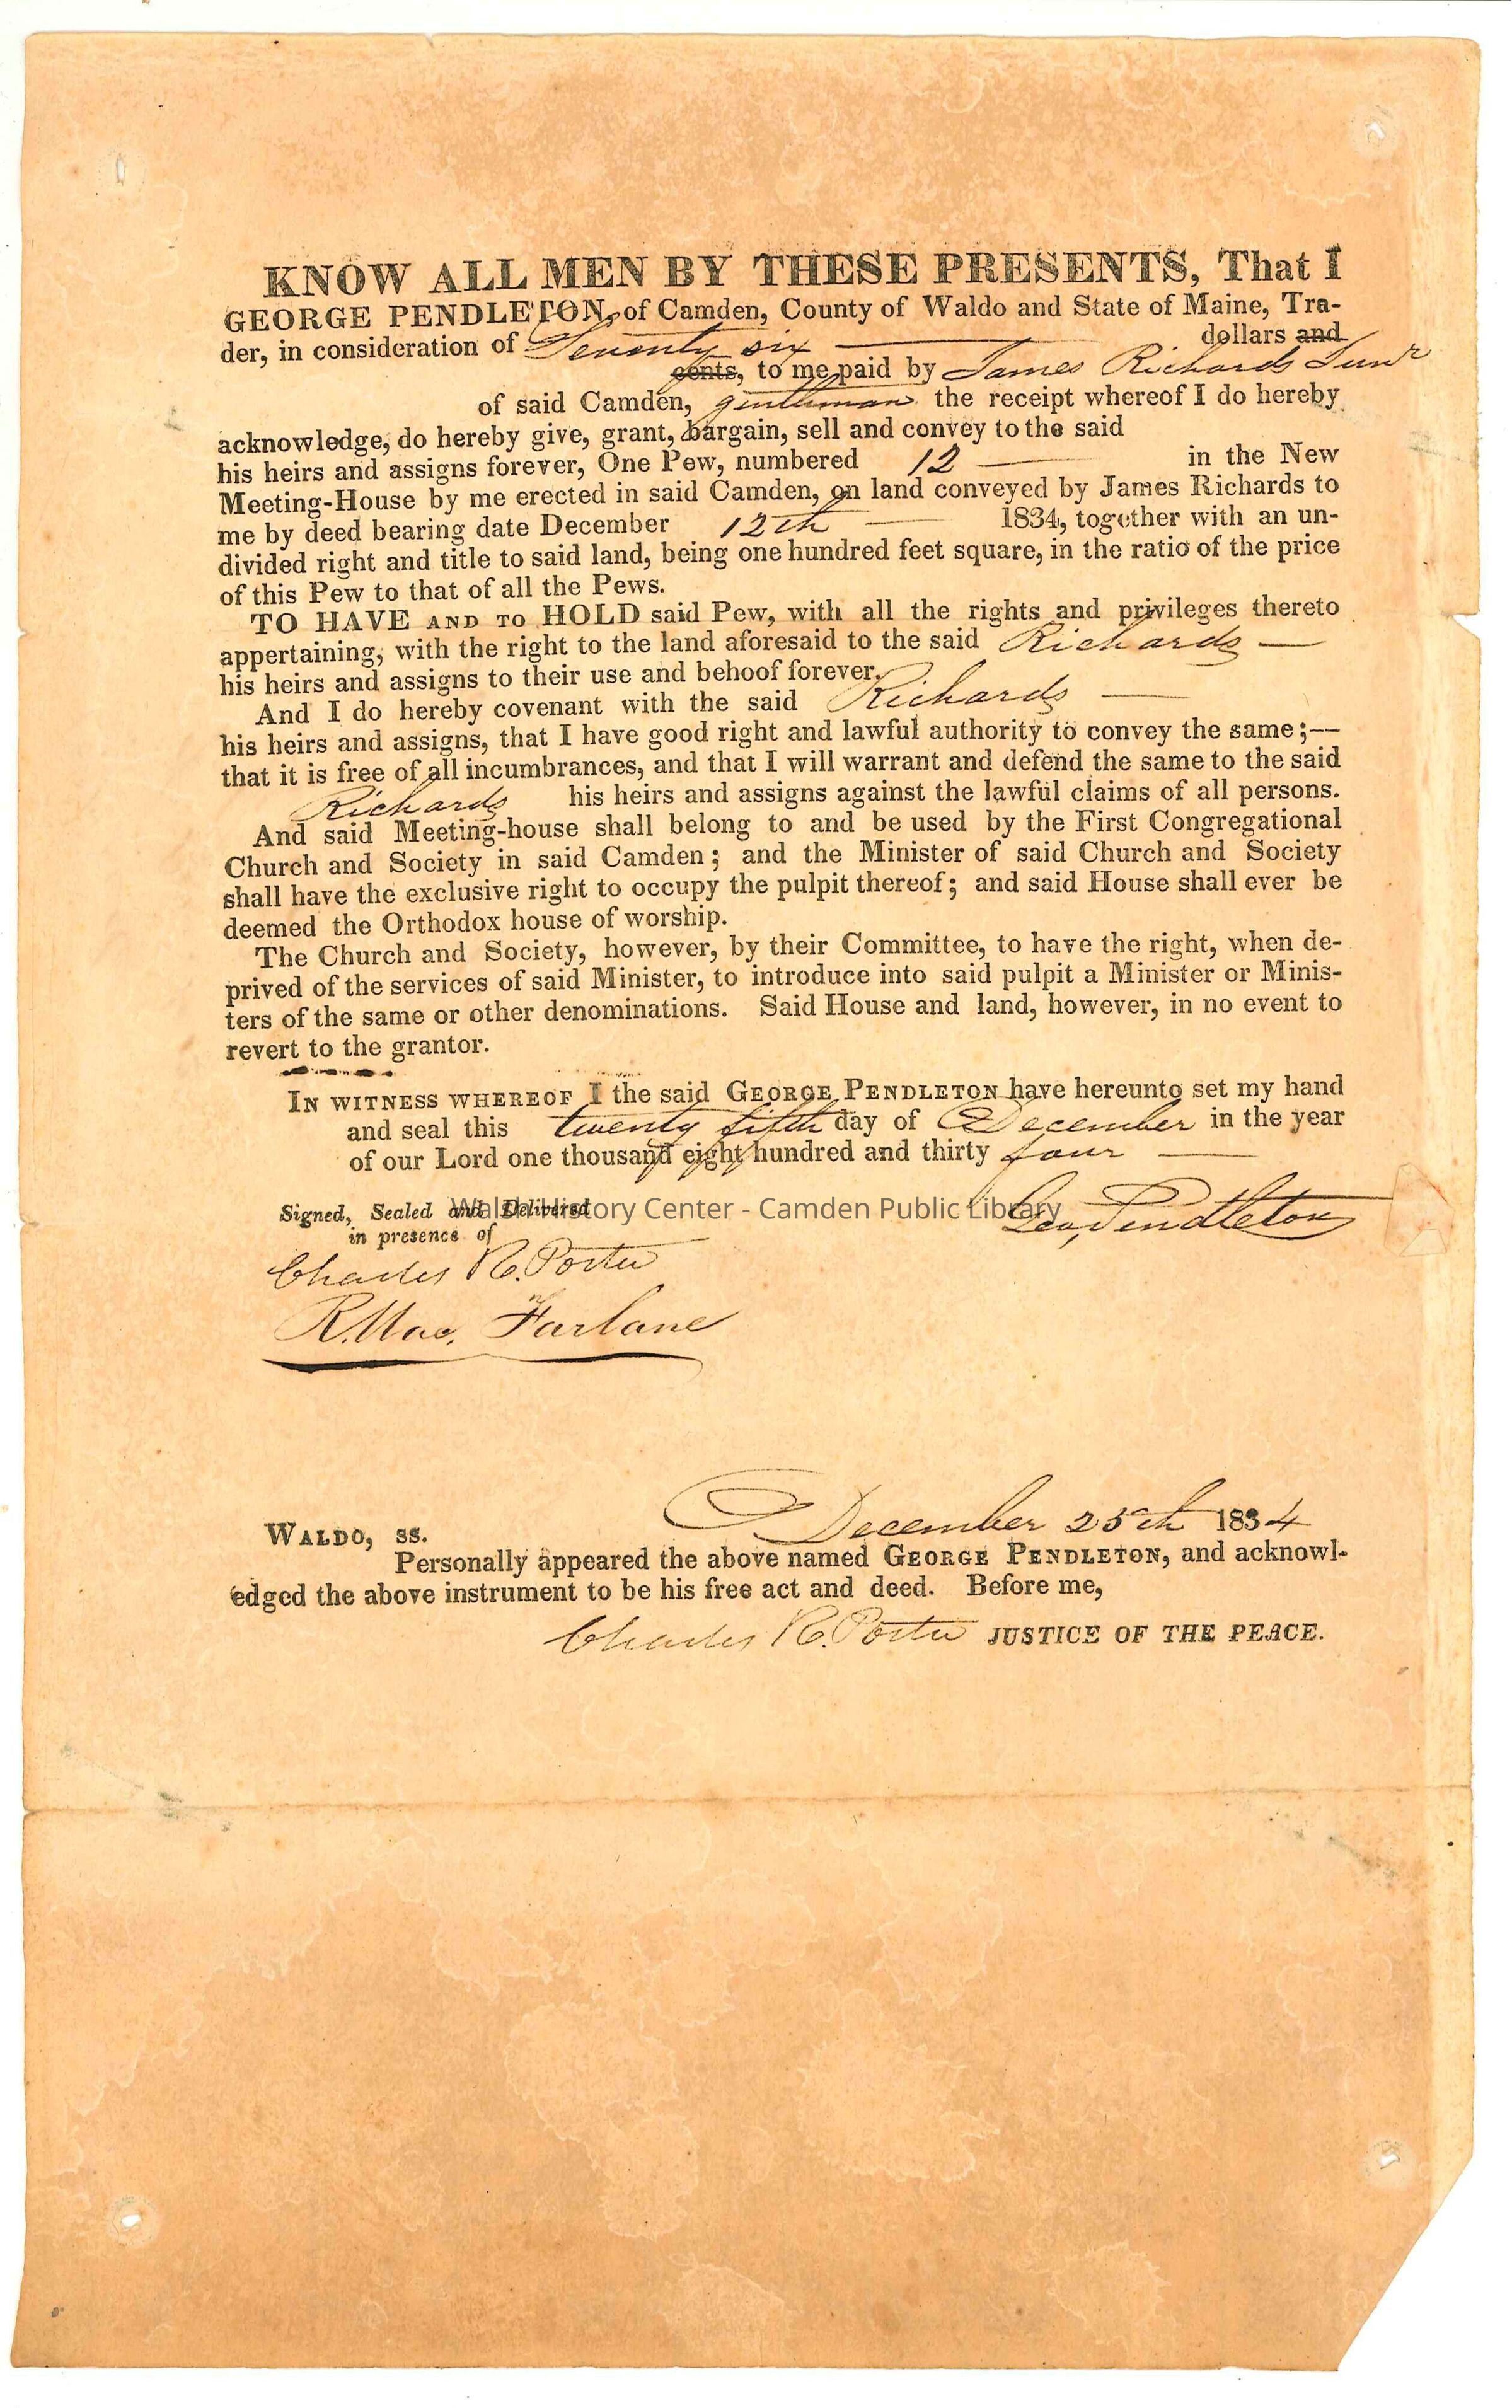 KNOW ALL MEN BY THESE PRESENTS, That I
GEORGE PENDLETON, of Camden, County of Waldo and State of Maine, Tra-
der, in consideration of Seventy six dollars and
cents, to me paid by James Richards Junr
of said Camden, gentleman the receipt whereof I do hereby
acknowledge, do hereby give, grant, bargain, sell and convey to the said
his heirs and assigns forever, One Pew, numbered 12 — in the New
Meeting-House by me erected in said Camden, on land conveyed by James Richards to
me by deed bearing date December 12th — 1834, together with an un-
divided right and title to said land, being one hundred feet square, in the ratio of the price
of this Pew to that of all the Pews.
TO HAVE AND TO HOLD said Pew, with all the rights and privileges thereto
appertaining, with the right to the land aforesaid to the said Richards —
his heirs and assigns to their use and behoof forever.
And I do hereby covenant with the said Richards —
his heirs and assigns, that I have good right and lawful authority to convey the same;—
that it is free of all incumbrances, and that I will warrant and defend the same to the said
Richards his heirs and assigns against the lawful claims of all persons.
And said Meeting-house shall belong to and be used by the First Congregational
Church and Society in said Camden; and the Minister of said Church and Society
shall have the exclusive right to occupy the pulpit thereof; and said House shall ever be
deemed the Orthodox house of worship.
The Church and Society, however, by their Committee, to have the right, when de-
prived of the services of said Minister, to introduce into said pulpit a Minister or Minis-
ters of the same or other denominations. Said House and land, however, in no event to
revert to the grantor.
IN WITNESS WHEREOF I the said GEORGE PENDLETON have hereunto set my hand
and seal this twenty fifth day of December in the year
of our Lord one thousand eight hundred and thirty four —
Signed, Sealed and Delivered
in presence of
Walsh History Center - Camden Public Library
Geo, Pendleton
Charles R. Porter
R. Mac. Farlane
WALDO, SS. December 25th 1834
Personally appeared the above named GEORGE PENDLETON, and acknowl-
edged the above instrument to be his free act and deed. Before me,
Charles R. Porter JUSTICE OF THE PEACE.